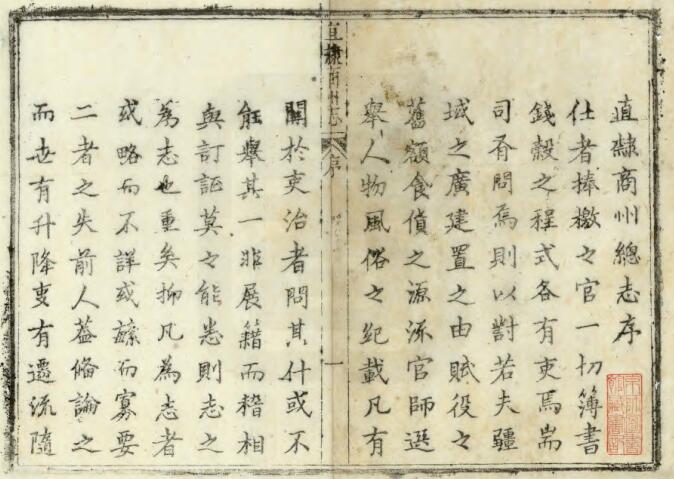 直隸商州總志序
仕者捧檄之官一切簿書
錢穀之程式各有吏焉耑
司有問焉則以對若夫疆
域之廣建置之由賦役之
舊額食貨之源流官師選
舉人物風俗之紀載凡有
直隸商州志
序
一
關於吏治者問其什或不
能舉其一非展籍而稽相
與訂証莫之能悉則志之
為志也重矣抑凡為志者
或略而不詳或蘇而寡要
二者之失前人葢俻論之
而世有升降事有遷流隨